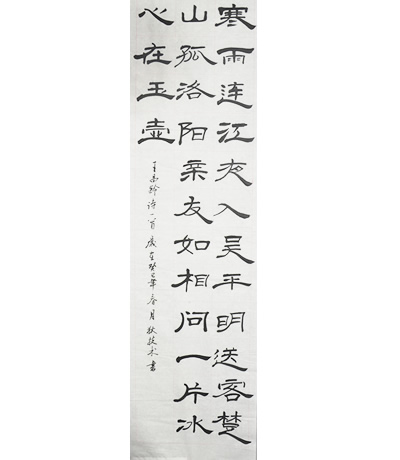 寒雨连江夜入吴平明送客楚
山孤洛阳亲友如相问一片冰
心在玉壶
王昌龄诗一首岁在癸巳年春月狄技术书